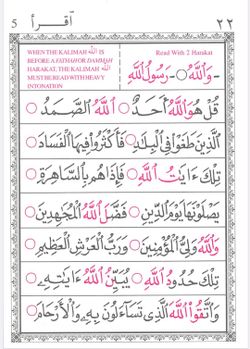 5 أقرأ ٢٢
WHEN THE KALIMAH الله IS
BEFORE A FATHAH OR DAMMAH
HARAKAT, THE KALIMAH الله
MUST BE READ WITH HEAVY
INTONATION
Read With 2 Harakat
وَٱللَّهُ رَسُولُ ٱللَّهِ
قُلْ هُوَ ٱللَّهُ أَحَدٌ ٱللَّهُ ٱلصَّمَدُ
ٱلَّذِينَ طَغَوْا۟ فِى ٱلْبِلَـٰدِ فَأَكْثَرُوا۟ فِيهَا ٱلْفَسَادَ
تِلْكَ ءَايَـٰتُ ٱللَّهِ فَإِذَا هُم بِٱلسَّاهِرَةِ
يَصْلَوْنَهَا يَوْمَ ٱلدِّينِ فَضَّلَ ٱللَّهُ ٱلْمُجَـٰهِدِينَ
وَٱللَّهُ وَلِىُّ ٱلْمُؤْمِنِينَ وَرَبُّ ٱلْعَرْشِ ٱلْعَظِيمِ
تِلْكَ حُدُودُ ٱللَّهِ يُبَيِّنُ ٱللَّهُ ءَايَـٰتِهِۦ
وَٱتَّقُوا۟ ٱللَّهَ ٱلَّذِى تَسَآءَلُونَ بِهِۦ وَٱلْأَرْحَامَ